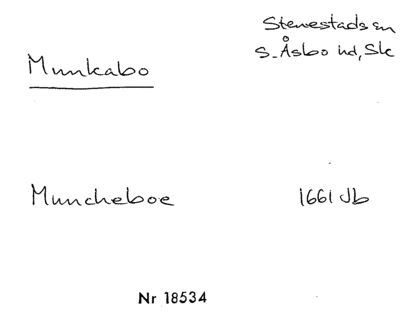 Stenestads sn
S. Åsbo hd, Sk
Munkabo
Muncheboe 1661 Jb
Nr 18534